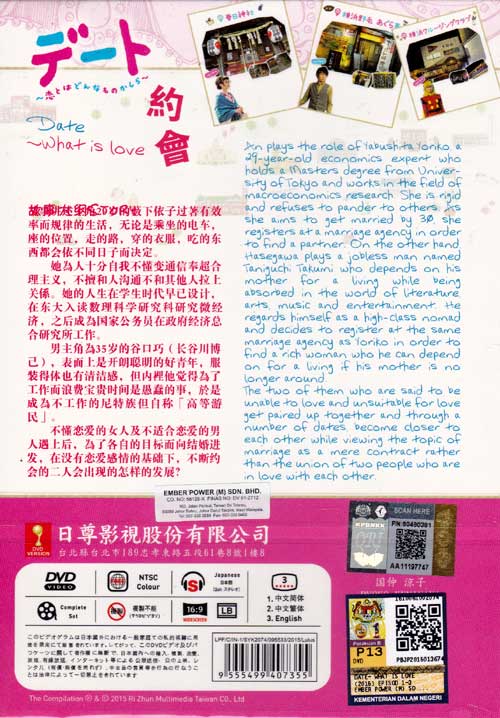 春日神社
横浜野毛 あぐら亭
横浜クルージングクラブ
デート
～恋とはどんなものかしら～
約會
Date
~What is love
An plays the role of Yabushita Yoriko, a
29-year-old economics expert who
holds a Masters degree from Univer-
sity of Tokyo and works in the field of
macroeconomics research. She is rigid
and refuses to pander to others. As
she aims to get married by 30, she
registers at a marriage agency in order
to find a partner. On the other hand
Hasegawa plays a jobless man named
Taniguchi Takumi who depends on his
mother for a living while being
absorbed in the world of literature,
arts, music and entertainment. He
regards himself as a high-class nomad
and decides to register at the same
marriage agency as Yoriko in order to
find a rich woman who he can depend
on for a living if his mother is no
longer around.
The two of them who are said to be
unable to love and unsuitable for love
get paired up together and through a
number of dates, become closer to
each other while viewing the topic of
marriage as a mere contract rather
than the union of two people who are
in love with each other.
藪下依子过著有效
率而规律的生活，无论是乘坐的电车，
座的位置，走的路，穿的衣服，吃的东
西都会依不同日子而决定。
她為人十分自我不懂变通信奉超合
理主义，不擅和人沟通不和其他人拉上
关係。她的人生在学生时代早已设计，
在东大入读数理科学研究科研究微经
济，之后成為国家公务员在政府经济总
合研究所工作。
男主角為35岁的谷口巧（长谷川博
己），表面上是开朗聪明的好青年，服
装得体也有清洁感，但内裡他覚得為了
工作而浪费宝贵时间是愚蠢的事，於是
成為不工作的尼特族但自称「高等游
民」。
不懂恋爱的女人及不适合恋爱的男
人遇上后，為了各自的目标而向结婚进
发，在没有恋爱感情的基础下，不断约
会的二人会出现的怎样的发展？
EMBER POWER (M) SDN. BHD.
DVD
VERSION
日尊影視股份有限公司
台北縣台北市189忠孝東路五段61巷8號1樓8
SCAN HERE
AA11197747
国仲 涼子
DVD
VIDEO
NTSC
Colour
Japanese
日本語
3
1. 中文简体
2. 中文繁体
3. English
Complete
Set
複製不能
16:9
LB
LPF/C/IN-1/SYK2074/095533/2015/Lotus
9 555499 407355
P13
DVD
DATE- WHAT IS LOVE
EMBER POWER (M) SD
KEMENTERIAN DALAM NEGERI
The Compilation ℗ & © 2015 Ri Zhun Multimedia Taiwan CO., Ltd